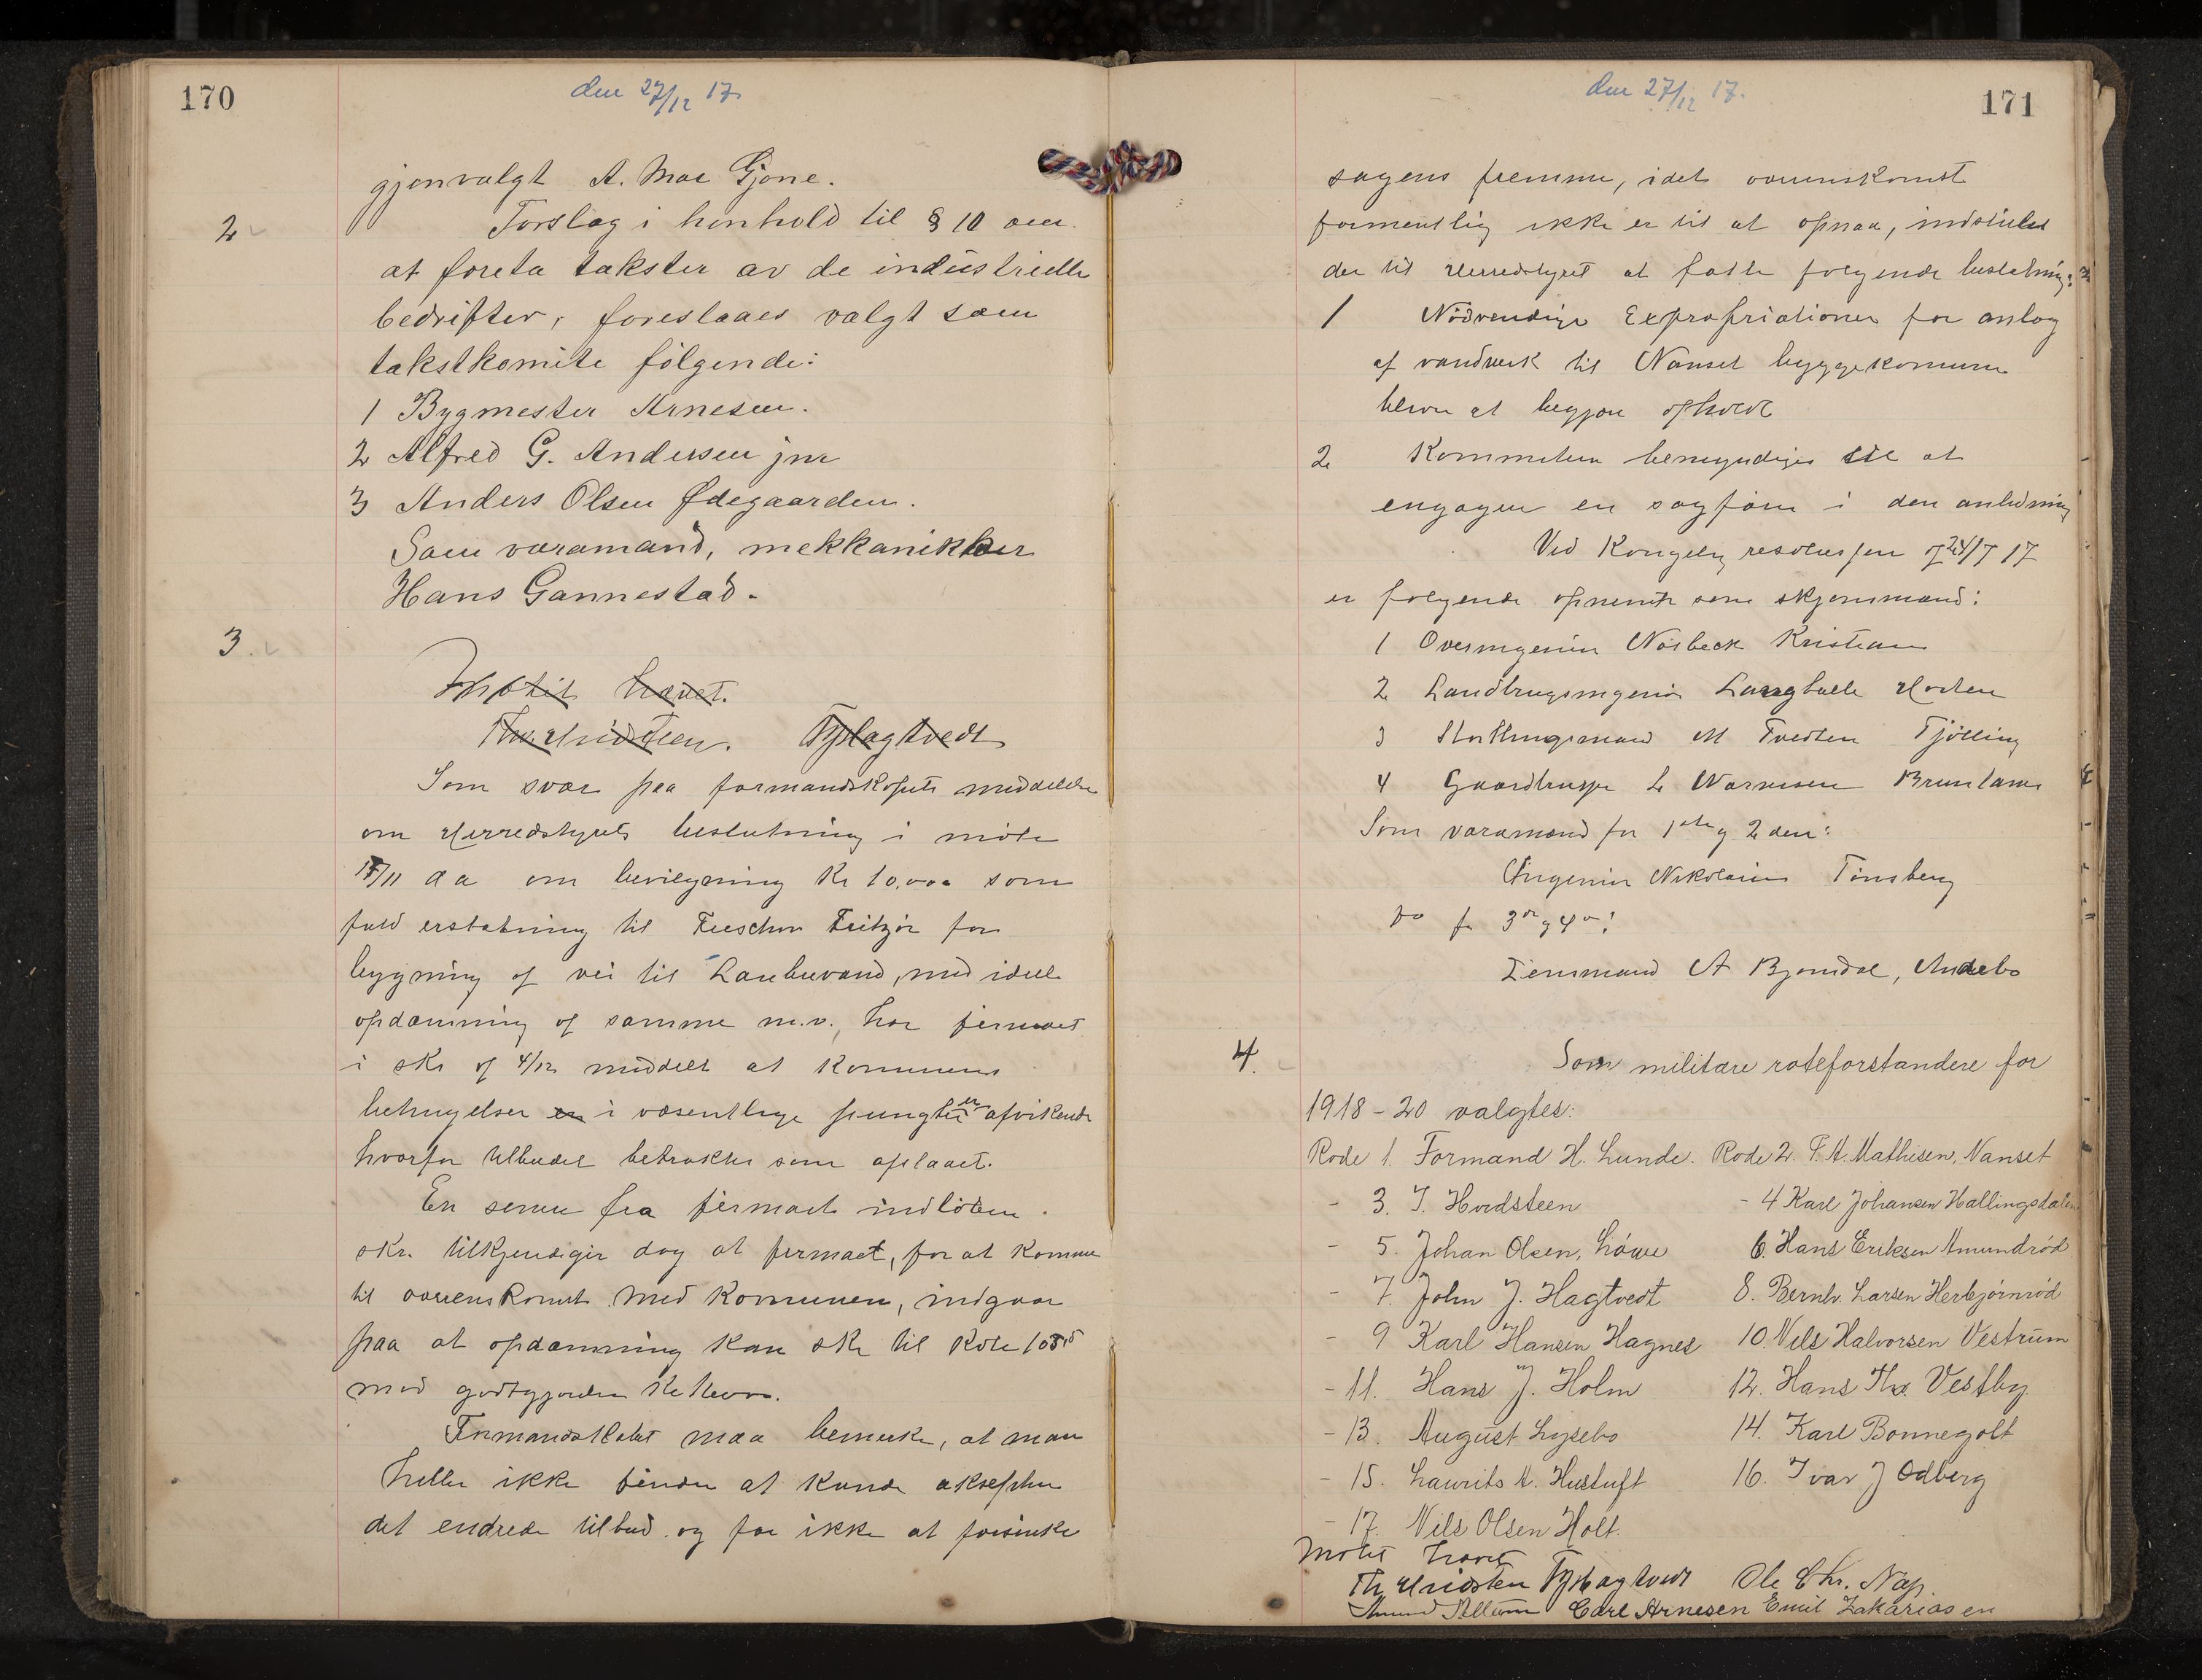 170
den 27/12 17.
gjenvalgt A. Mac Gjone.
2
Forslag i henhold til § 10 om
at foreta takster av de industrielle
bedrifter, foreslaaes valgt som
takstkomite følgende:
1 Bygmester Arnesen.
2 Alfred G. Andersen jnr
3 Anders Olsen Ødegaarden.
Som varamand, mekkanikker
Hans Gannestad.
3.
Møtet hævet.
Som svar paa formandskapets meddelelse
om Herredstyrets beslutning i møte
17/11 d a om bevilgning Kr 10.000 som
fuld erstatning til Treschow Fritzøe for
bygning af vei til vand, med
opdæmning af samme m.v., har firmaet
i skr af 4/12 meddelt at Kommunens
betingelser er i væsentlige pungter er afvikende
hvorfor tilbudet betraktes som afslaaet.
En senere fra firmaet indløben
skr. tilkjendegir dog at firmaet, for at komme
til overenskomst med Kommunen, indgaar
paa at opdæmning kan ske til Kote 105
mod godtgjørelse Kr
Formandskabet maa bemerke, at man
heller ikke finder at kunde akseptere
det endrede tilbud og for ikke at forsinke
171
den 27/12 17.
sagens fremme, idet overenskomst
formentlig ikke er til at opnaa, indstilles
der til Herredstyret at fatte følgende beslutning:
1 Nödvendige Expropriationer for anlæg
af vandverk til Nanset byggekommune
blir at begjære afholdt
2 Kommiteen bemyndiges til at
engagere en sagfører i den anledning
Ved Kongelig resolusjon af 24/7 17
er følgende opnevnt som skjønsmænd:
1 Overingeniør Nørbeck Kristiania
2 Landbrugsingeniør Langballe Horten
3 Stortingsmand M Tvedten Tjölling
4 Gaardbruger L Brunlanes
Som varamænd for 1ste og 2den:
Ingeniør Nikolaisen Tønsberg
do for 3die og 4de:
Lensmand A Bjøndal, Andebo
4.
Som militære rodeforstandere for
1918 - 20 valgtes:
Rode 1. Formand H. Lunde. Rode 2. F. A. Mathisen, Nanset
- 3. T. Hvidsteen - 4 Karl Johansen Hallingsdalen
- 5. Johan Olsen, Löwe 6 Hans Eriksen Amundrød
- 7. John J. Hagtvedt 8. Bernh. Larsen Herbjørnrød
- 9 Karl Hansen Hagnes 10. Nils Halvorsen Vestrum
- 11. Hans J. Holm 12. Hans Thv. Vestby
- 13. August Lysebo 14. Karl Bonnegolt
- 15. Laurits A. Hustuft 16. Ivar J Odberg
- 17. Nils Olsen Holt.
Møtet hævet
Th Hvidsten Ole Chr. Nap.
Carl Arnesen Emil Zakariasen